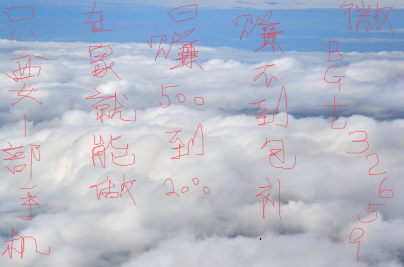 只要一部手机
在家就能做
日赚500到2000
赚不到包
微BGt32659